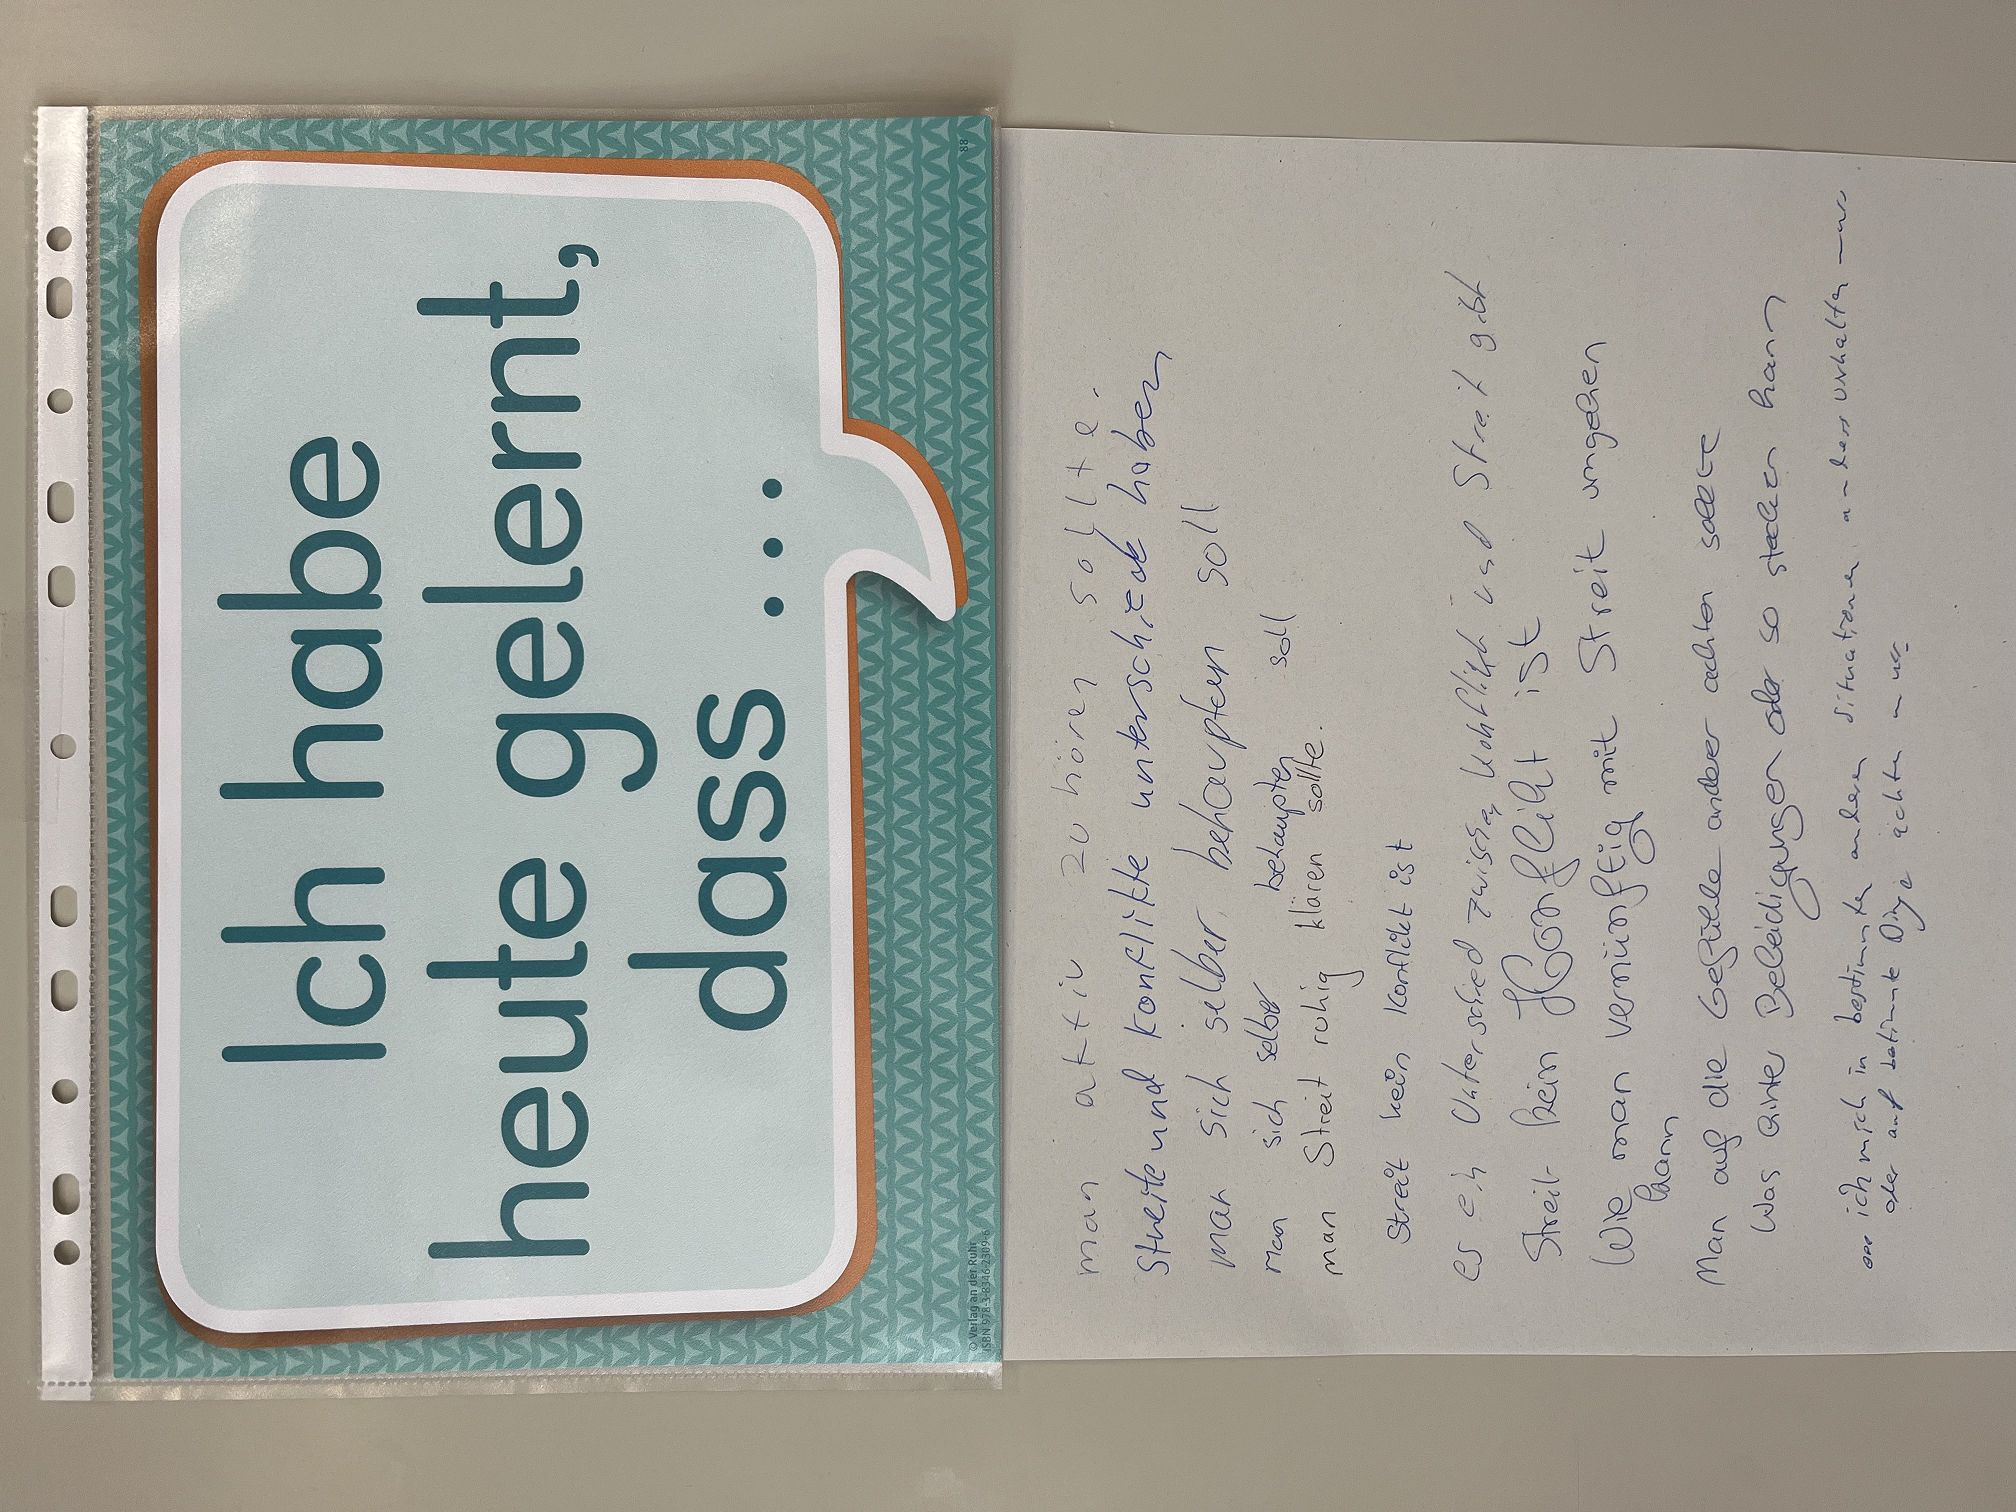 Ich habe
heute gelernt,
dass ...
© Verlag an der Ruhr
ISBN 978-3-8346-2309-6
88
man aktiv zuhören sollte.
Streite und Konflikte unterschiede haben
man sich selber behaupten soll
man sich selber behaupten soll
man Streit ruhig klären sollte.
Streit kein Konflickt ist
es ein Unterschied zwischen Konflikt und Streit gibt
Streit kein Konflickt ist
Wie man vernünftig mit Streit umgehen
kann
Man auf die Gefühle anderer achten sollte
Was hinter Beleidigungen oder so stecken kann
... ich mich in bestimmten anderen Situationen anders verhalten muss
oder auf bestimmte Dinge achten muss